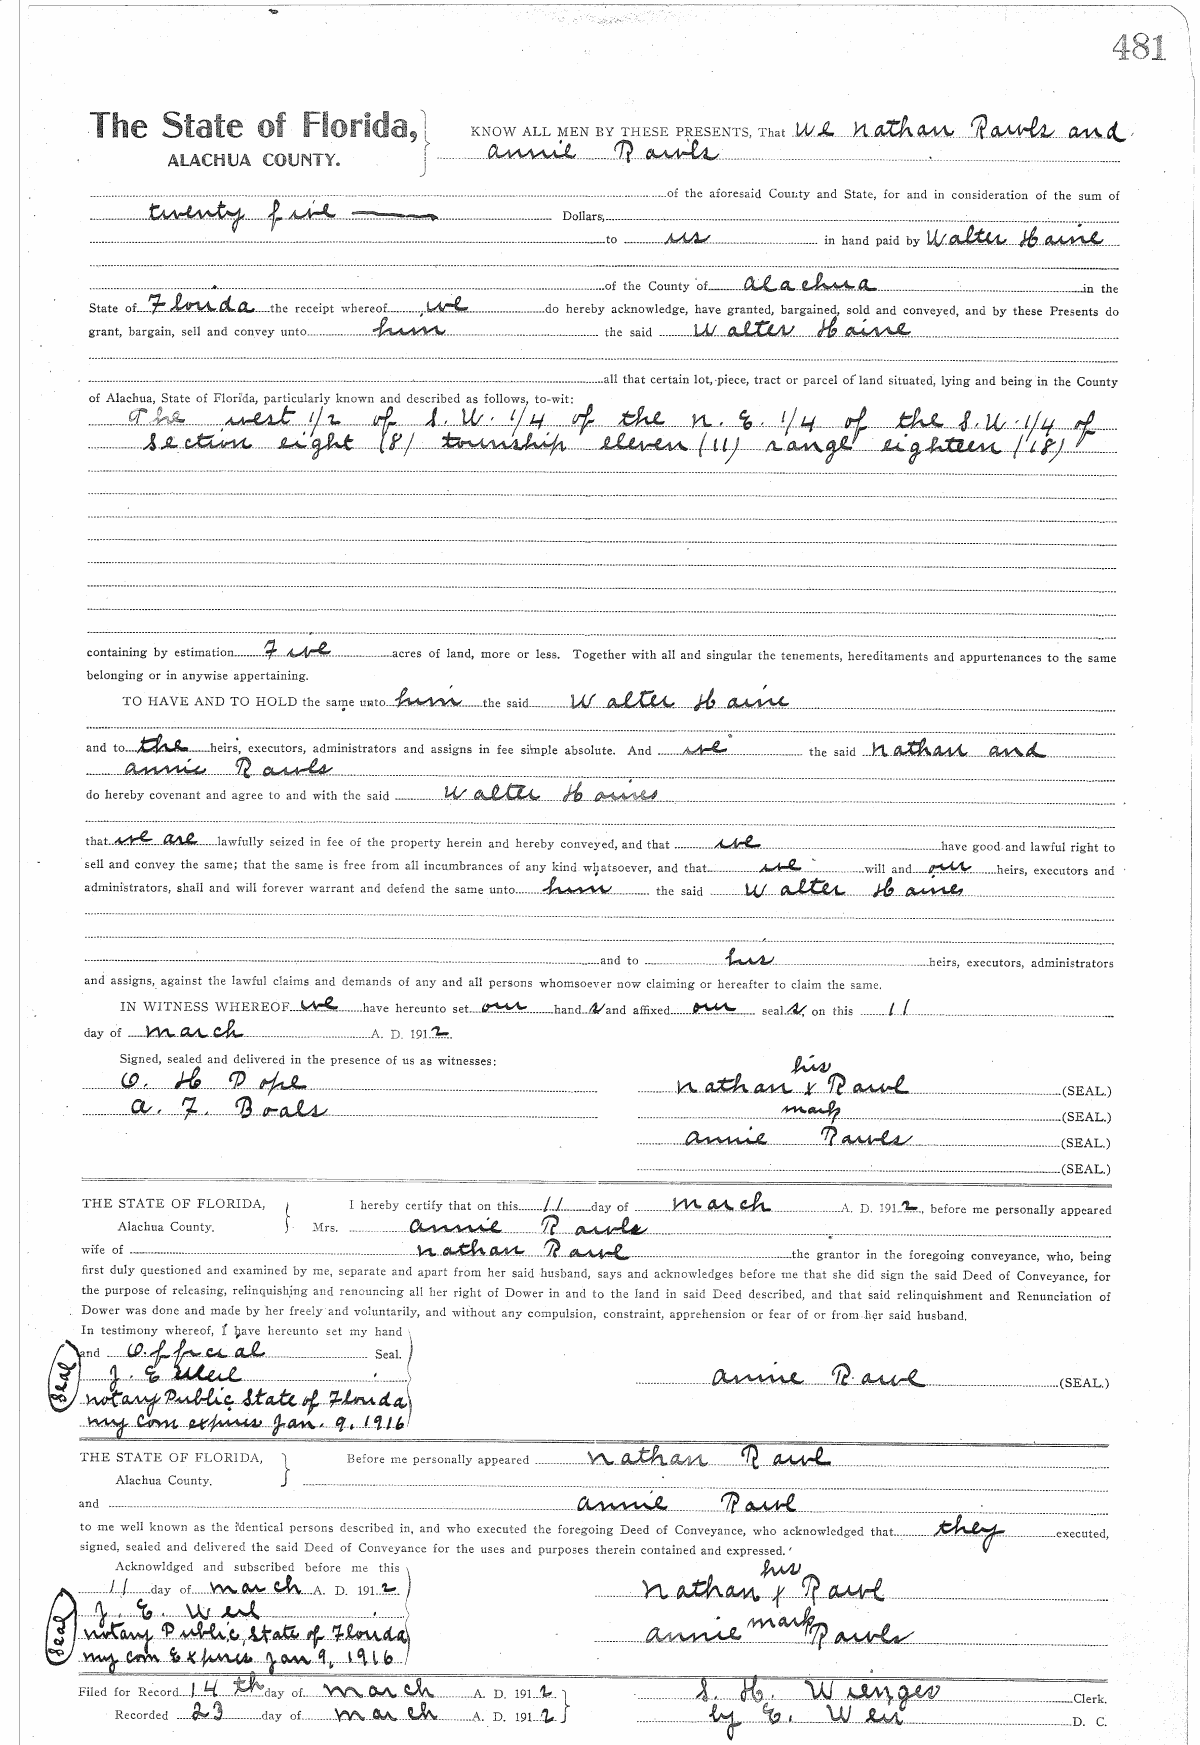 481
The State of Florida, KNOW ALL MEN BY THESE PRESENTS, That we Nathan Rawls and
ALACHUA COUNTY. Annie Rawls
of the aforesaid County and State, for and in consideration of the sum of
twenty five Dollars,
to us in hand paid by Walter Haine
of the County of Alachua in the
State of Florida the receipt whereof we do hereby acknowledge, have granted, bargained, sold and conveyed, and by these Presents do
grant, bargain, sell and convey unto him the said Walter Haine
all that certain lot, piece, tract or parcel of land situated, lying and being in the County
of Alachua, State of Florida, particularly known and described as follows, to-wit:
The west 1/2 of S.W. 1/4 of the N.E. 1/4 of the S.W. 1/4 of
Section eight (8) township eleven (11) range eighteen (18)
containing by estimation Five acres of land, more or less. Together with all and singular the tenements, hereditaments and appurtenances to the same
belonging or in anywise appertaining.
TO HAVE AND TO HOLD the same unto him the said Walter Haine
and to the heirs, executors, administrators and assigns in fee simple absolute. And we the said Nathan and
Annie Rawls
do hereby covenant and agree to and with the said Walter Haines
that we are lawfully seized in fee of the property herein and hereby conveyed, and that we have good and lawful right to
sell and convey the same; that the same is free from all incumbrances of any kind whatsoever, and that we will and our heirs, executors and
administrators, shall and will forever warrant and defend the same unto him the said Walter Haines
and to his heirs, executors, administrators
and assigns, against the lawful claims and demands of any and all persons whomsoever now claiming or hereafter to claim the same.
IN WITNESS WHEREOF we have hereunto set our hand s and affixed our seal s, on this 11
day of March A. D. 1912.
Signed, sealed and delivered in the presence of us as witnesses:
his
O. H Pope Nathan x Rawl (SEAL.)
A. F. Boals mark (SEAL.)
Annie Rawls (SEAL.)
(SEAL.)
THE STATE OF FLORIDA, I hereby certify that on this 11 day of March A. D. 1912, before me personally appeared
Alachua County. Mrs. Annie Rawls
wife of Nathan Rawl the grantor in the foregoing conveyance, who, being
first duly questioned and examined by me, separate and apart from her said husband, says and acknowledges before me that she did sign the said Deed of Conveyance, for
the purpose of releasing, relinquishing and renouncing all her right of Dower in and to the land in said Deed described, and that said relinquishment and Renunciation of
Dower was done and made by her freely and voluntarily, and without any compulsion, constraint, apprehension or fear of or from her said husband.
In testimony whereof, I have hereunto set my hand
and Official Seal.
Seal J. E Weil Annie Rawl (SEAL.)
Notary Public State of Florida
my com expires Jan. 9, 1916
THE STATE OF FLORIDA, Before me personally appeared Nathan Rawl
Alachua County.
and Annie Rawl
to me well known as the identical persons described in, and who executed the foregoing Deed of Conveyance, who acknowledged that they executed,
signed, sealed and delivered the said Deed of Conveyance for the uses and purposes therein contained and expressed.
Acknowldged and subscribed before me this his
11 day of March A. D. 1912 Nathan x Rawl
Seal J. E. Weil mark
Notary Public, State of Florida Annie Rawls
my com Expires Jan 9, 1916
Filed for Record 14th day of March A. D. 1912 S. H. Wienges Clerk.
Recorded 23 day of March A. D. 1912 by E. Weir D. C.